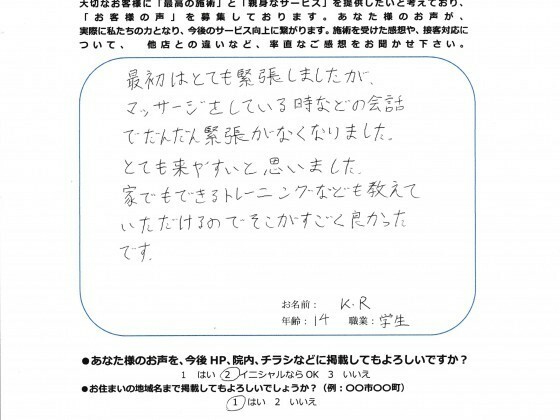 大切なお客様に「最高の施術」と「親身なサービス」を提供したいと考えており、
「お客様の声」を募集しております。あなた様のお声が、
実際に私たちの力となり、今後のサービス向上に繋がります。施術を受けた感想や、接客対応に
ついて、他店との違いなど、率直なご感想をお聞かせ下さい。
最初はとても緊張しましたが、
マッサージをしている時などの会話
でだんだん緊張がなくなりました。
とても来やすいと思いました。
家でもできるトレーニングなども教えて
いただけるのでそこがすごく良かった
です。
お名前： K.R
年齢：14 職業：学生
●あなた様のお声を、今後HP、院内、チラシなどに掲載してもよろしいですか？
1 はい 2 イニシャルならOK 3 いいえ
●お住まいの地域名まで掲載してもよろしいでしょうか？（例：〇〇市〇〇町）
1 はい 2 いいえ